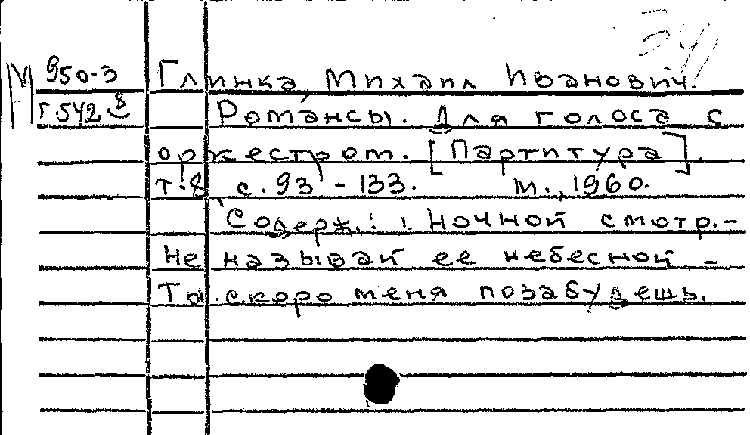 М 950-3 Глинка, Михаил Иванович.
Г 542 Романсы. Для голоса с
оркестром. [Партитура].
Т. 8 с. 93 - 133. М., 1960.
Содерж.: Ночной смотр.-
Не называй ее небесной -
Ты скоро меня позабудешь.